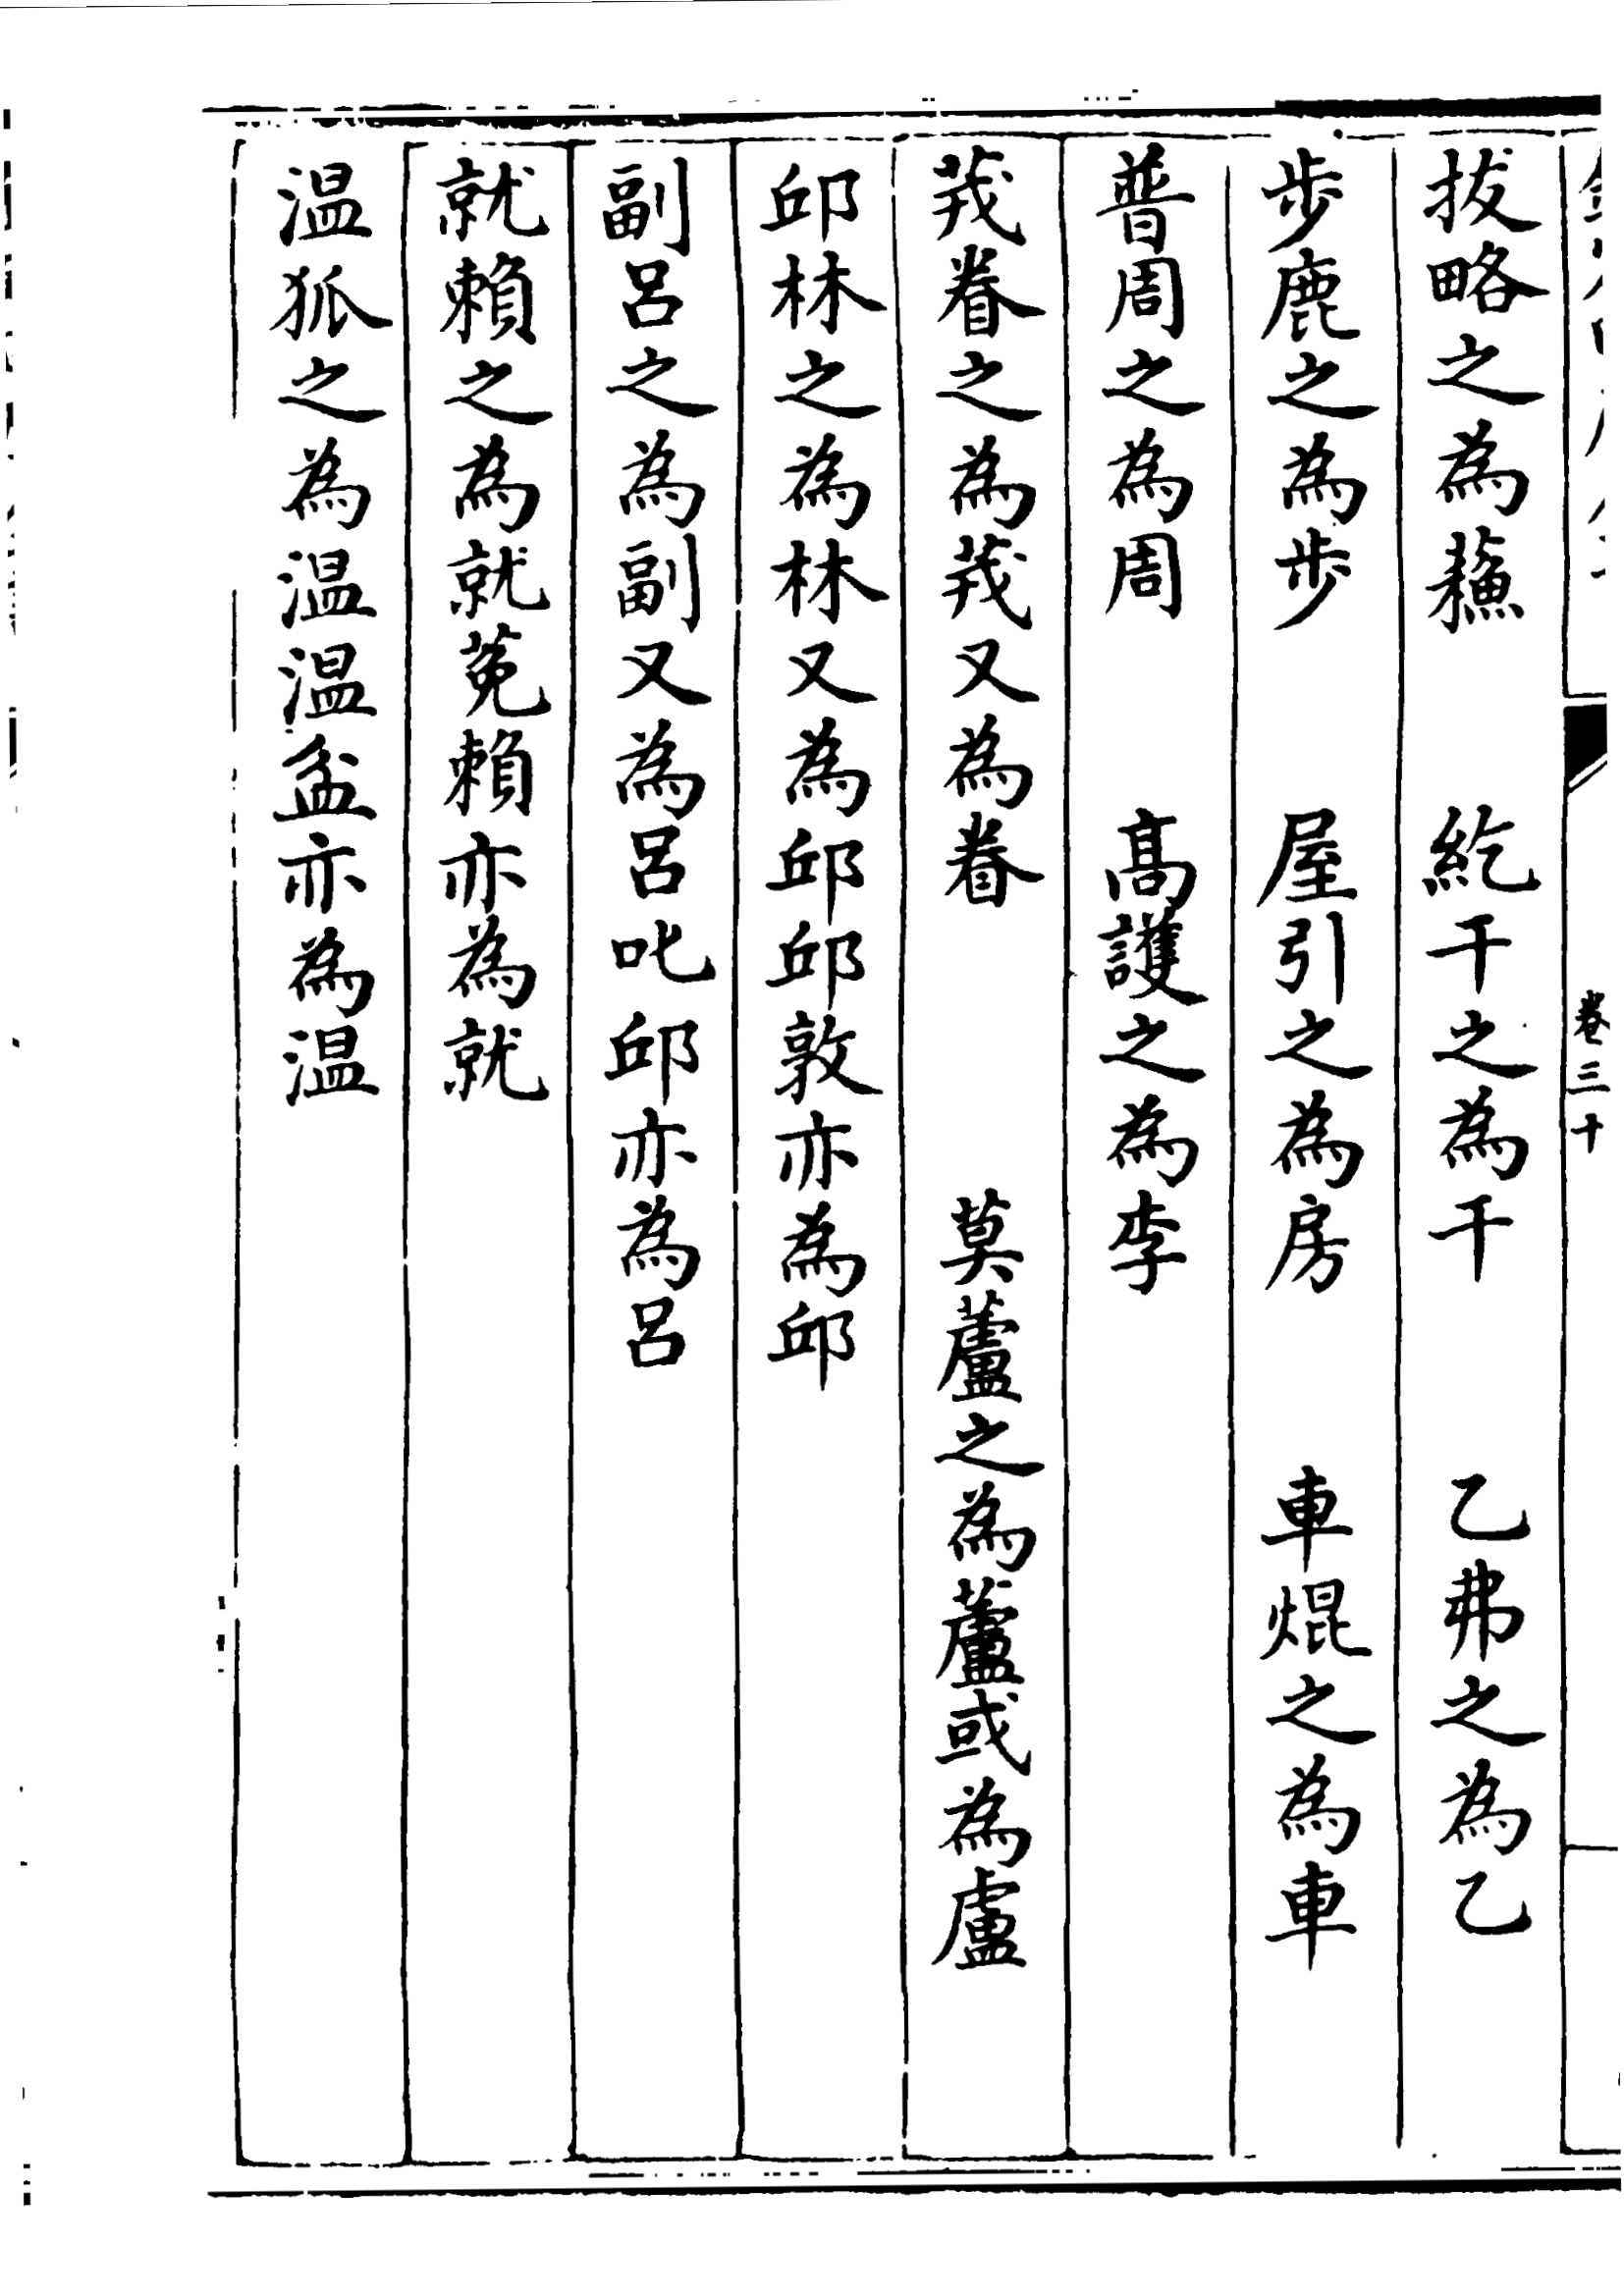 拔略之為蘓　　紇干之為干　　乙弗之為乙
步鹿之為步　　屋引之為房　　車焜之為車
普周之為周　　高護之為李
茙眷之為茙又為眷　　　莫蘆之為蘆或為盧
邱林之為林又為邱邱敦亦為邱
副呂之為副又為呂叱邱亦為呂
就賴之為就菟賴亦為就
温狐之為温温盆亦為温
卷三十